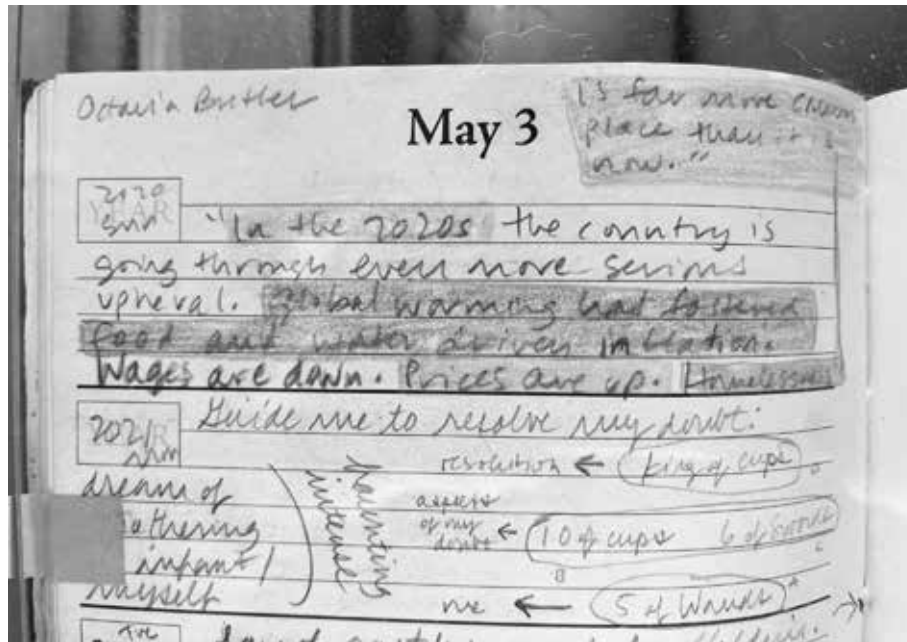 Octavia Butler
May 3
is far more common
place than it is
now."
2020
Sun
"In the 2020s the country is
going through even more serious
upheval. Global warming had fostered
food and water driven inflation.
Wages are down. Prices are up. Homelessness
2021
Mon
Guide me to resolve my doubt:
resolution ← King of Cups
dreams of
infant/
myself
haunting
intense
aspects
of my
doubt ← 10 of cups 6 of Swords
me ← 5 of Wands
Tue